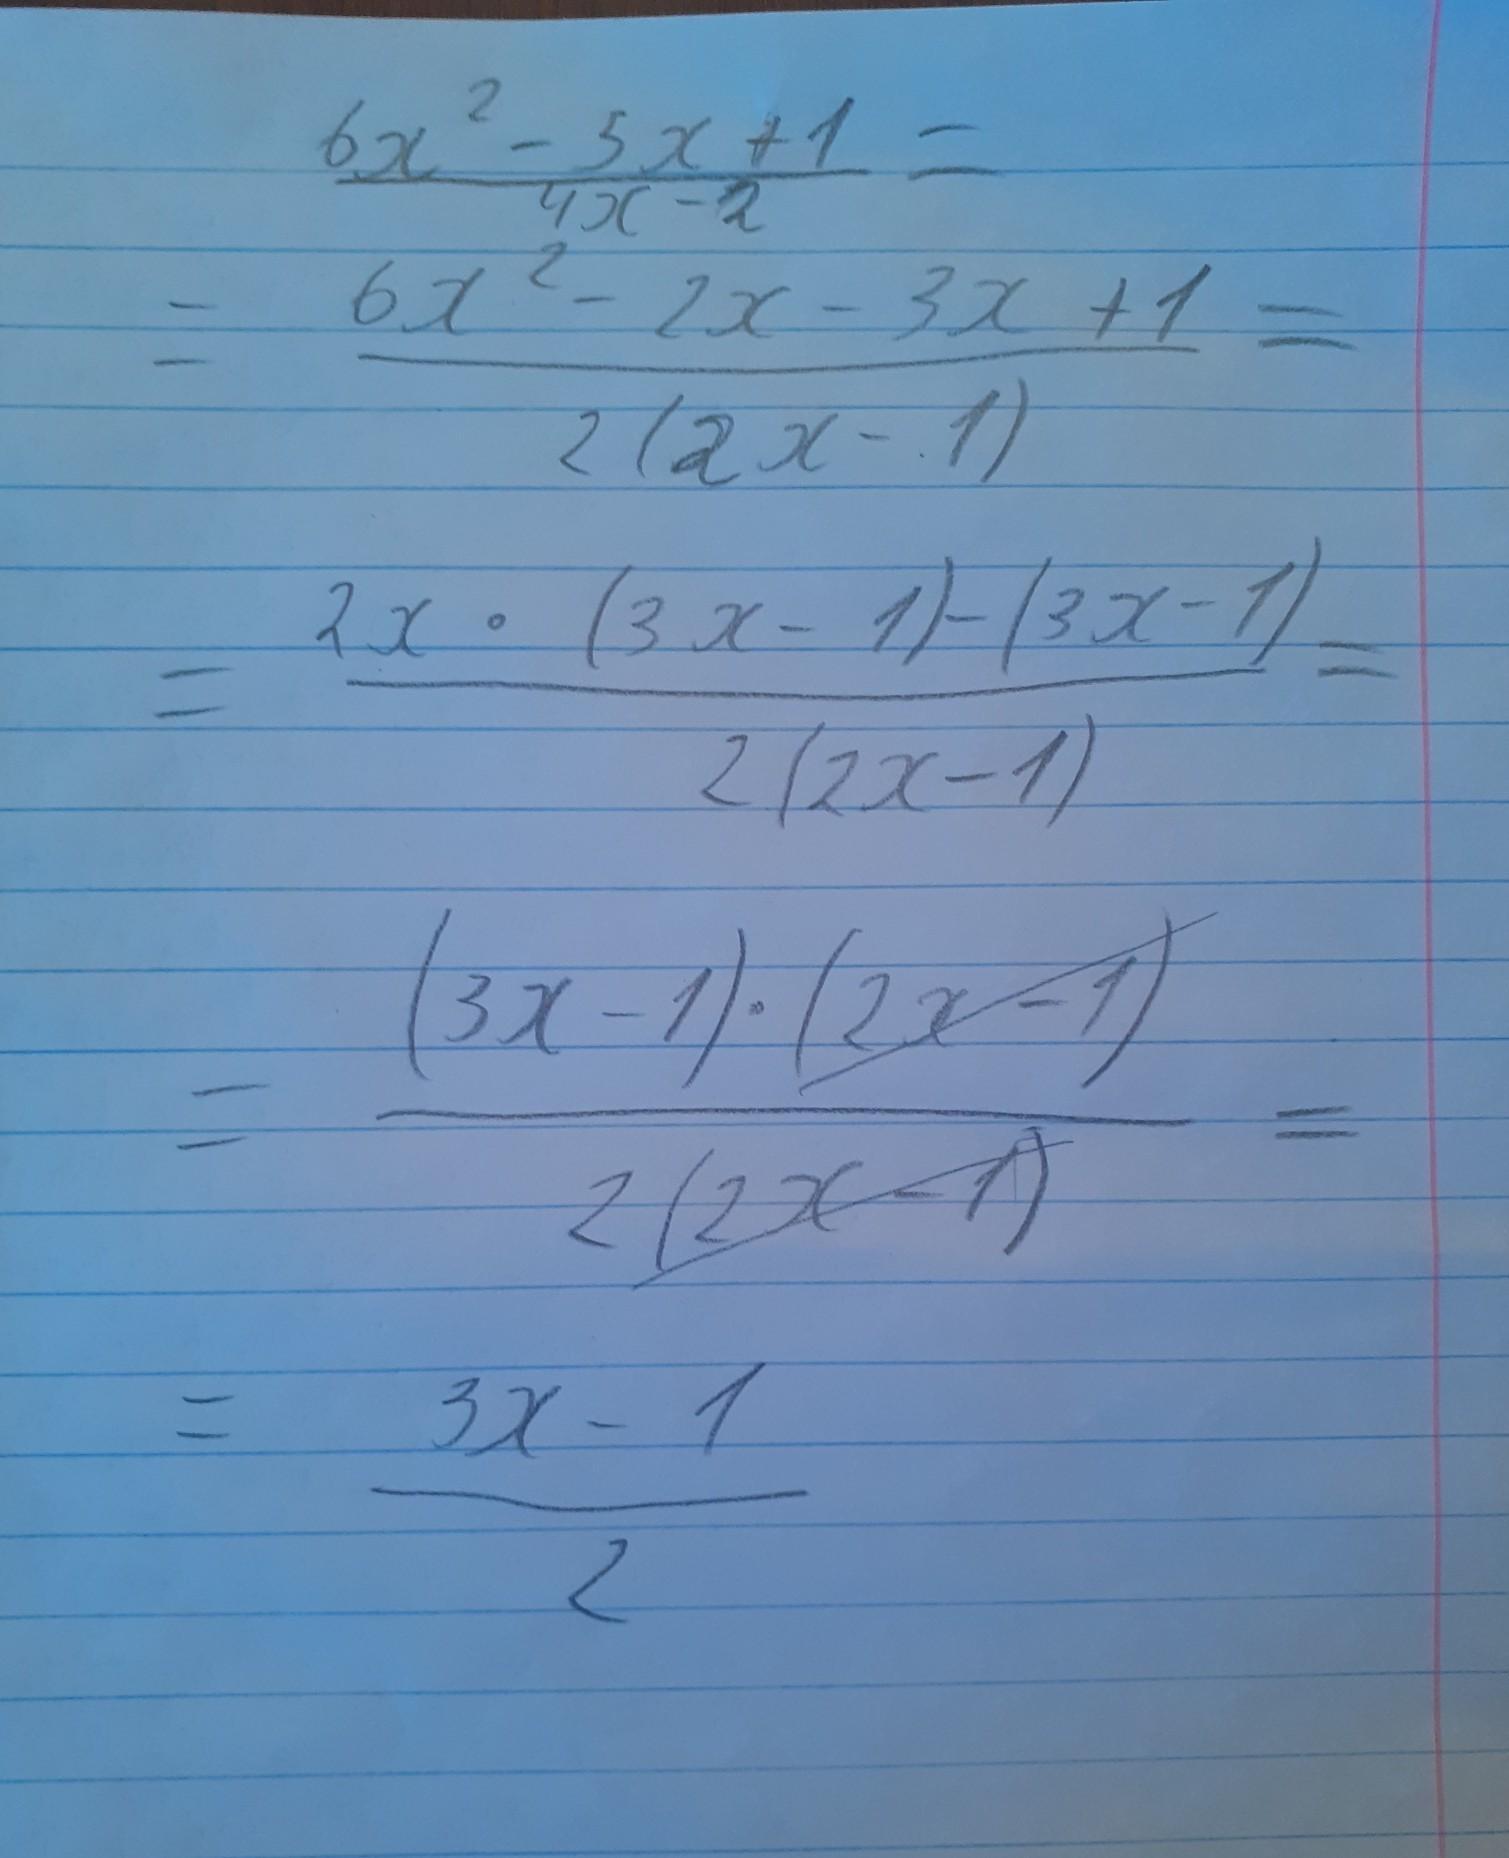 6x² - 5x + 1 =
4x - 2
= 6x² - 2x - 3x + 1 =
2(2x - 1)
= 2x · (3x - 1) - (3x - 1) =
2(2x - 1)
= (3x - 1) · (2x - 1) =
2(2x - 1)
= 3x - 1
2